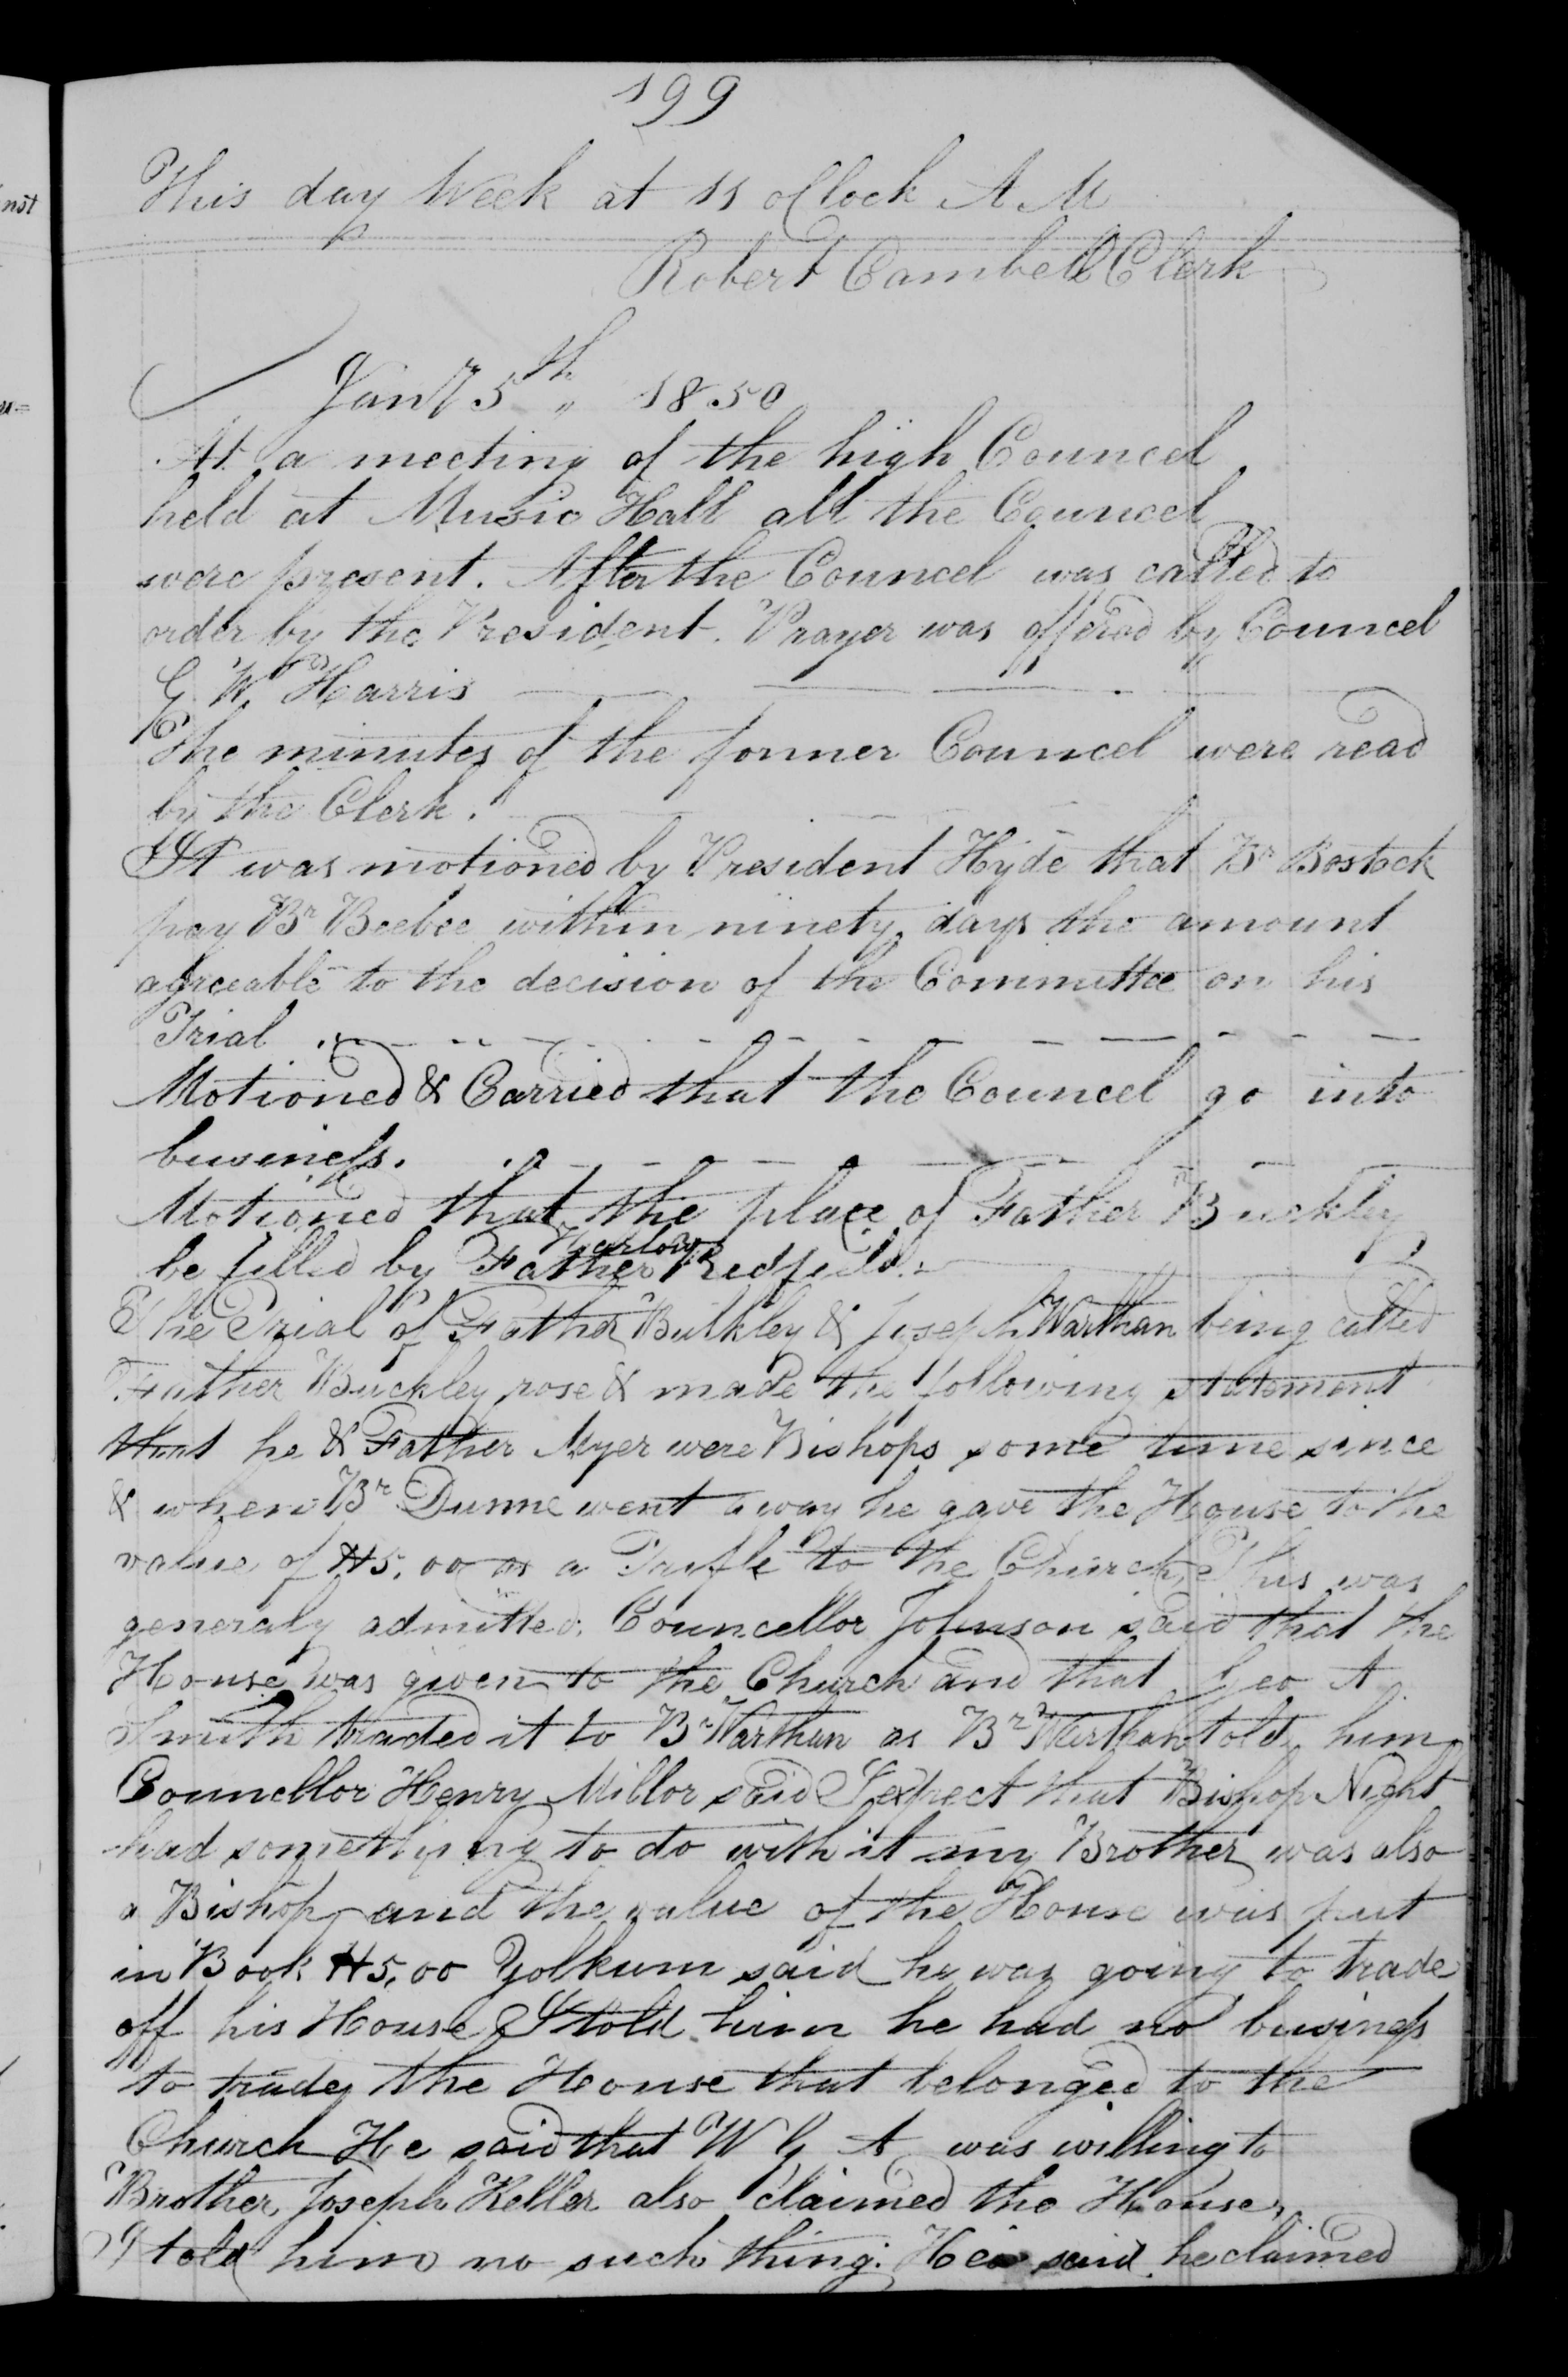 199
This day Week at 11 oClock A M
Robert Cambell Clerk
Jany 5th " 1850
At a meeting of the high Councel
held at Music Hall all the Councel
were present. After the Councel was called to
order by the President. Prayer was offered by Councel
G W Harris
The minutes of the former Councel were read
by the Clerk.
It was motioned by President Hyde that Br Bostock
pay Br Beebee within ninety days the amount
agreeable to the decision of the Committee on his
Trial
Motioned & Carried that the Councel go into
business.
Motioned that the place of Father Buckley
Harlow
be filled by Father Redfield.
The Trial of Father Bulkley & Joseph Warthan being called
Father Buckley rose & made the following statement
that he & Father Myer were Bishops some time since
& when Br Dunne went away he gave the House to the
value of $5,00 as a Trifle to the Church, This was
generaly admitted. Councellor Johnson said that the
House was given to the Church and that Geo A
Smith traded it to Br Warthan as Br Warthan told him
Councellor Henry Millor said I expect that Bishop Night
had something to do with it my Brother was also
a Bishop and the value of the House was put
in Book $5,00 Yolkum said he was going to trade
off his House I told him he had no business
to trade the House that belonged to the
Church He said that W G A was willing to
Brother Joseph Keller also claimed the House,
I told him no such thing. He said he claimed
not